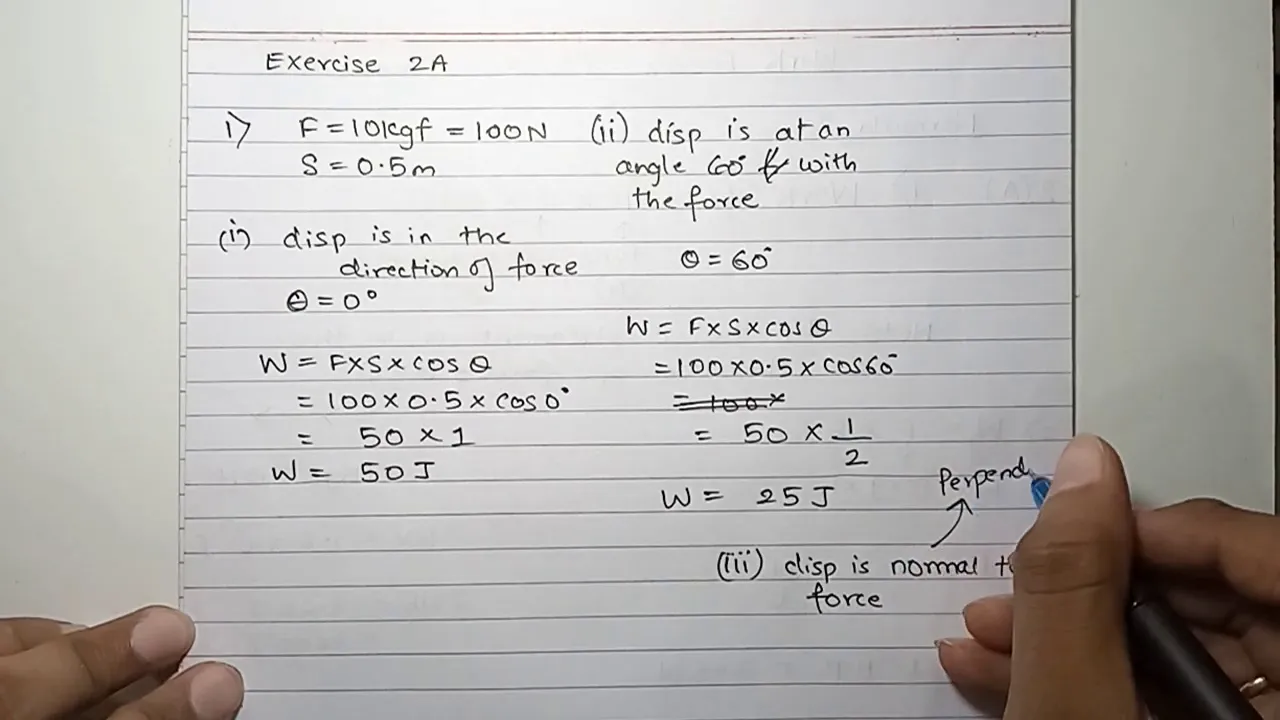 Exercise 2A
1) F = 10kgf = 100N
S = 0.5m
(i) disp is in the
direction of force
θ = 0°
W = F×S×cos θ
= 100×0.5×cos0°
= 50×1
W = 50J
(ii) disp is at an
angle 60° with
the force
θ = 60°
W = F×S×cos θ
= 100×0.5×cos60°
= 100×
= 50 × 1/2
W = 25J
Perpend
(iii) disp is normal
force